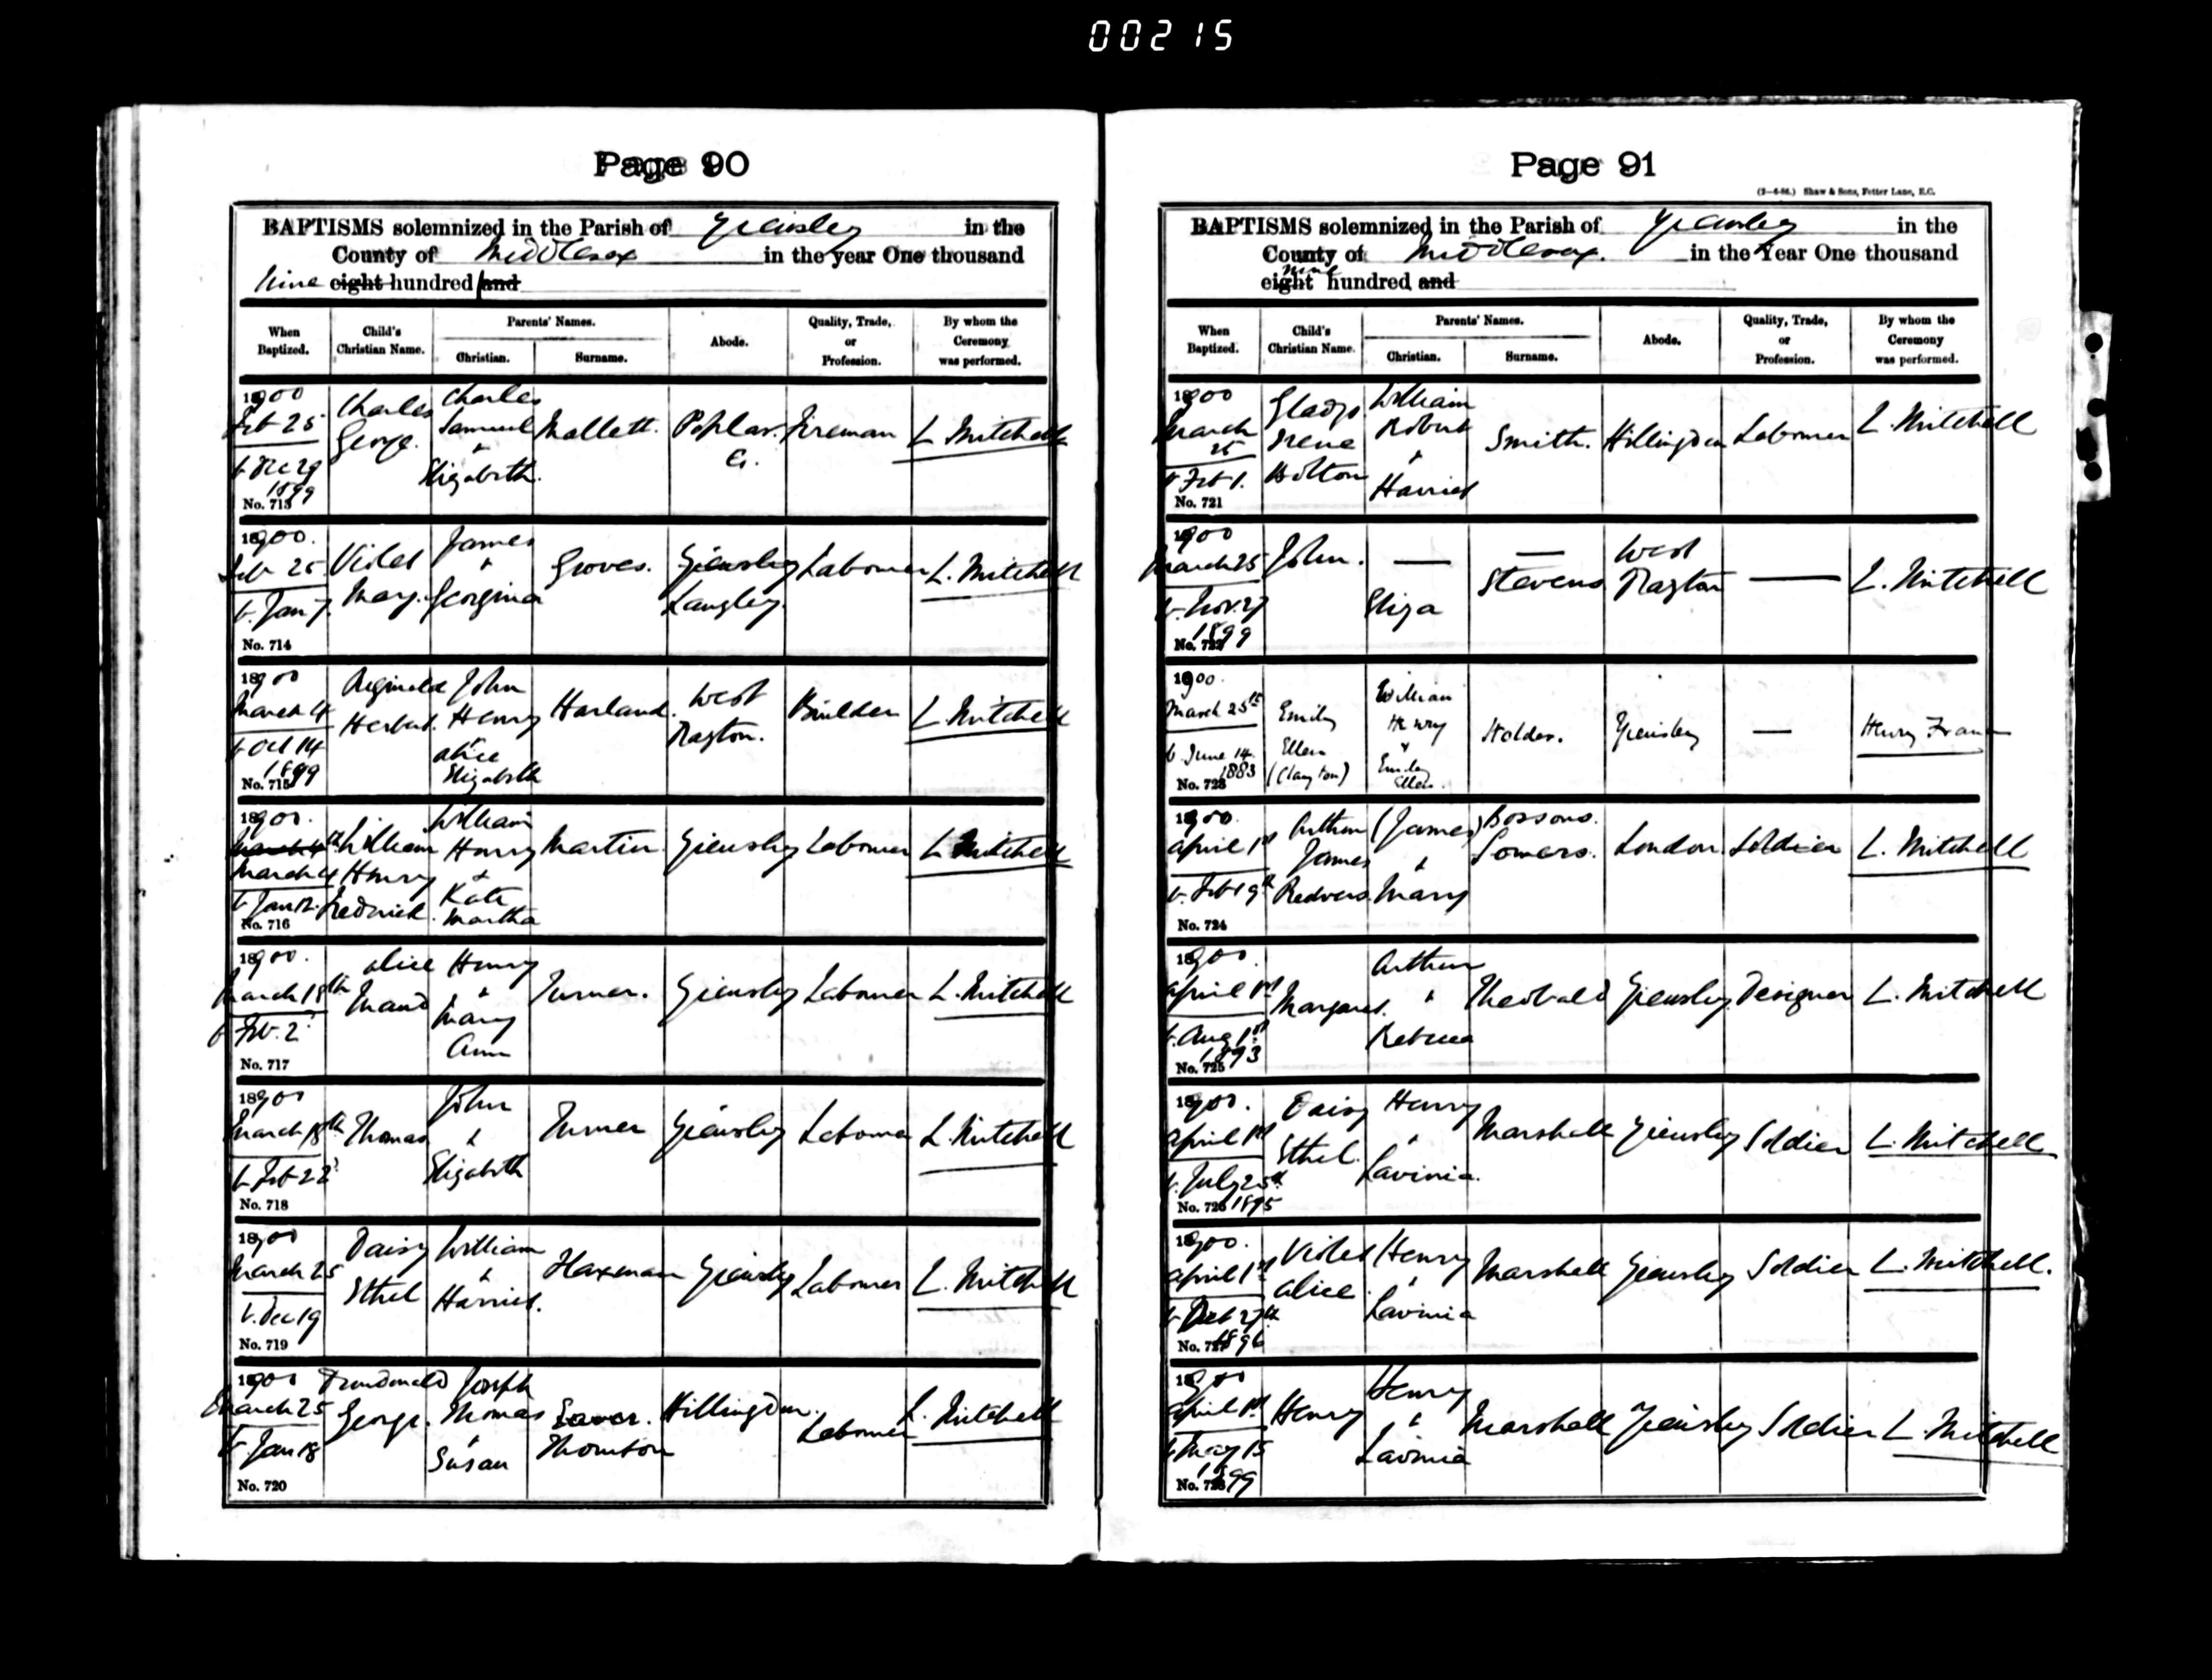 00215
Page 90
BAPTISMS solemnized in the Parish of Yiewsley in the
County of Middlesex in the year One thousand
nine eight hundred and
When Baptized. Child's Christian Name. Parents' Names. Christian. Surname. Abode. Quality, Trade, or Profession. By whom the Ceremony was performed.
1900 Feb 25 b. Dec 29 1899 No. 713 Charles George. Charles Samuel & Elizabeth. Mallett. Poplar. E. Fireman L Mitchell
1900. Feb 25 b. Jan 7. No. 714 Violet May. James & Georgina Groves. Yiewsley Langley. Labourer L. Mitchell
1900 March 4 b Oct 14 1899 No. 715 Reginald Herbert. John Henry & Alice Elizabeth Harland. West Drayton. Builder L Mitchell
1900. March 4 b Jan 12. No. 716 William Henry Frederick. William Henry & Kate Martha Martin Yiewsley Labourer L Mitchell
1900. March 18th b Feb. 2 No. 717 Alice Maud Henry & Mary Ann Turner. Yiewsley Labourer L. Mitchell
1900 March 18th b Feb 22 No. 718 Thomas John & Elizabeth Turner Yiewsley Labourer L. Mitchell
1900 March 25 b. Dec 19 No. 719 Daisy Ethel William & Harriet. Flaxman Yiewsley Labourer L. Mitchell
1900 March 25 b. Jan 18 No. 720 George. Joseph Thomas & Susan Thornton Hillingdon. Labourer L. Mitchell
Page 91
(2—6-86.) Shaw & Sons, Fetter Lane, E.C.
BAPTISMS solemnized in the Parish of Yiewsley in the
County of Middlesex. in the Year One thousand
nine
eight hundred and
When Baptized. Child's Christian Name. Parents' Names. Christian. Surname. Abode. Quality, Trade, or Profession. By whom the Ceremony was performed.
1900 March 25 b Feb 1. No. 721 Gladys Irene Bolton William Robert & Harriet Smith. Hillingdon Labourer L. Mitchell
1900 March 25 b. Nov. 27 1899 No. 722 John. — Eliza — Stevens West Drayton — L. Mitchell
1900. March 25th b. June 14. 1883 No. 723 Emily Ellen (Clayton) William Henry & Emily Ellen. Holder. Yiewsley — Henry
1900. April 1st b. Feb 19th No. 724 Arthur James Redvers (James) & Mary Bossons. Somers. London Soldier L. Mitchell
1900. April 1st b. Aug 1st 1893 No. 725 Margaret. Arthur & Rebecca Theobald Yiewsley Designer L. Mitchell
1900. April 1st b. July 25th 1895 No. 726 Daisy Ethel. Henry & Lavinia. Marshall Yiewsley Soldier L. Mitchell
1900. April 1st b 27th 1896 No. 727 Violet Alice Henry & Lavinia Marshall Yiewsley Soldier L. Mitchell.
1900 April 1st b May 15 1899 No. 728 Henry Henry & Lavinia Marshall Yiewsley Soldier L. Mitchell